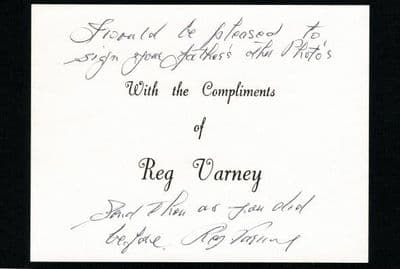 I would be pleased to
sign your father's other Photo's
With the Compliments
of
Reg Varney
Send them as you did
before. Reg Varney